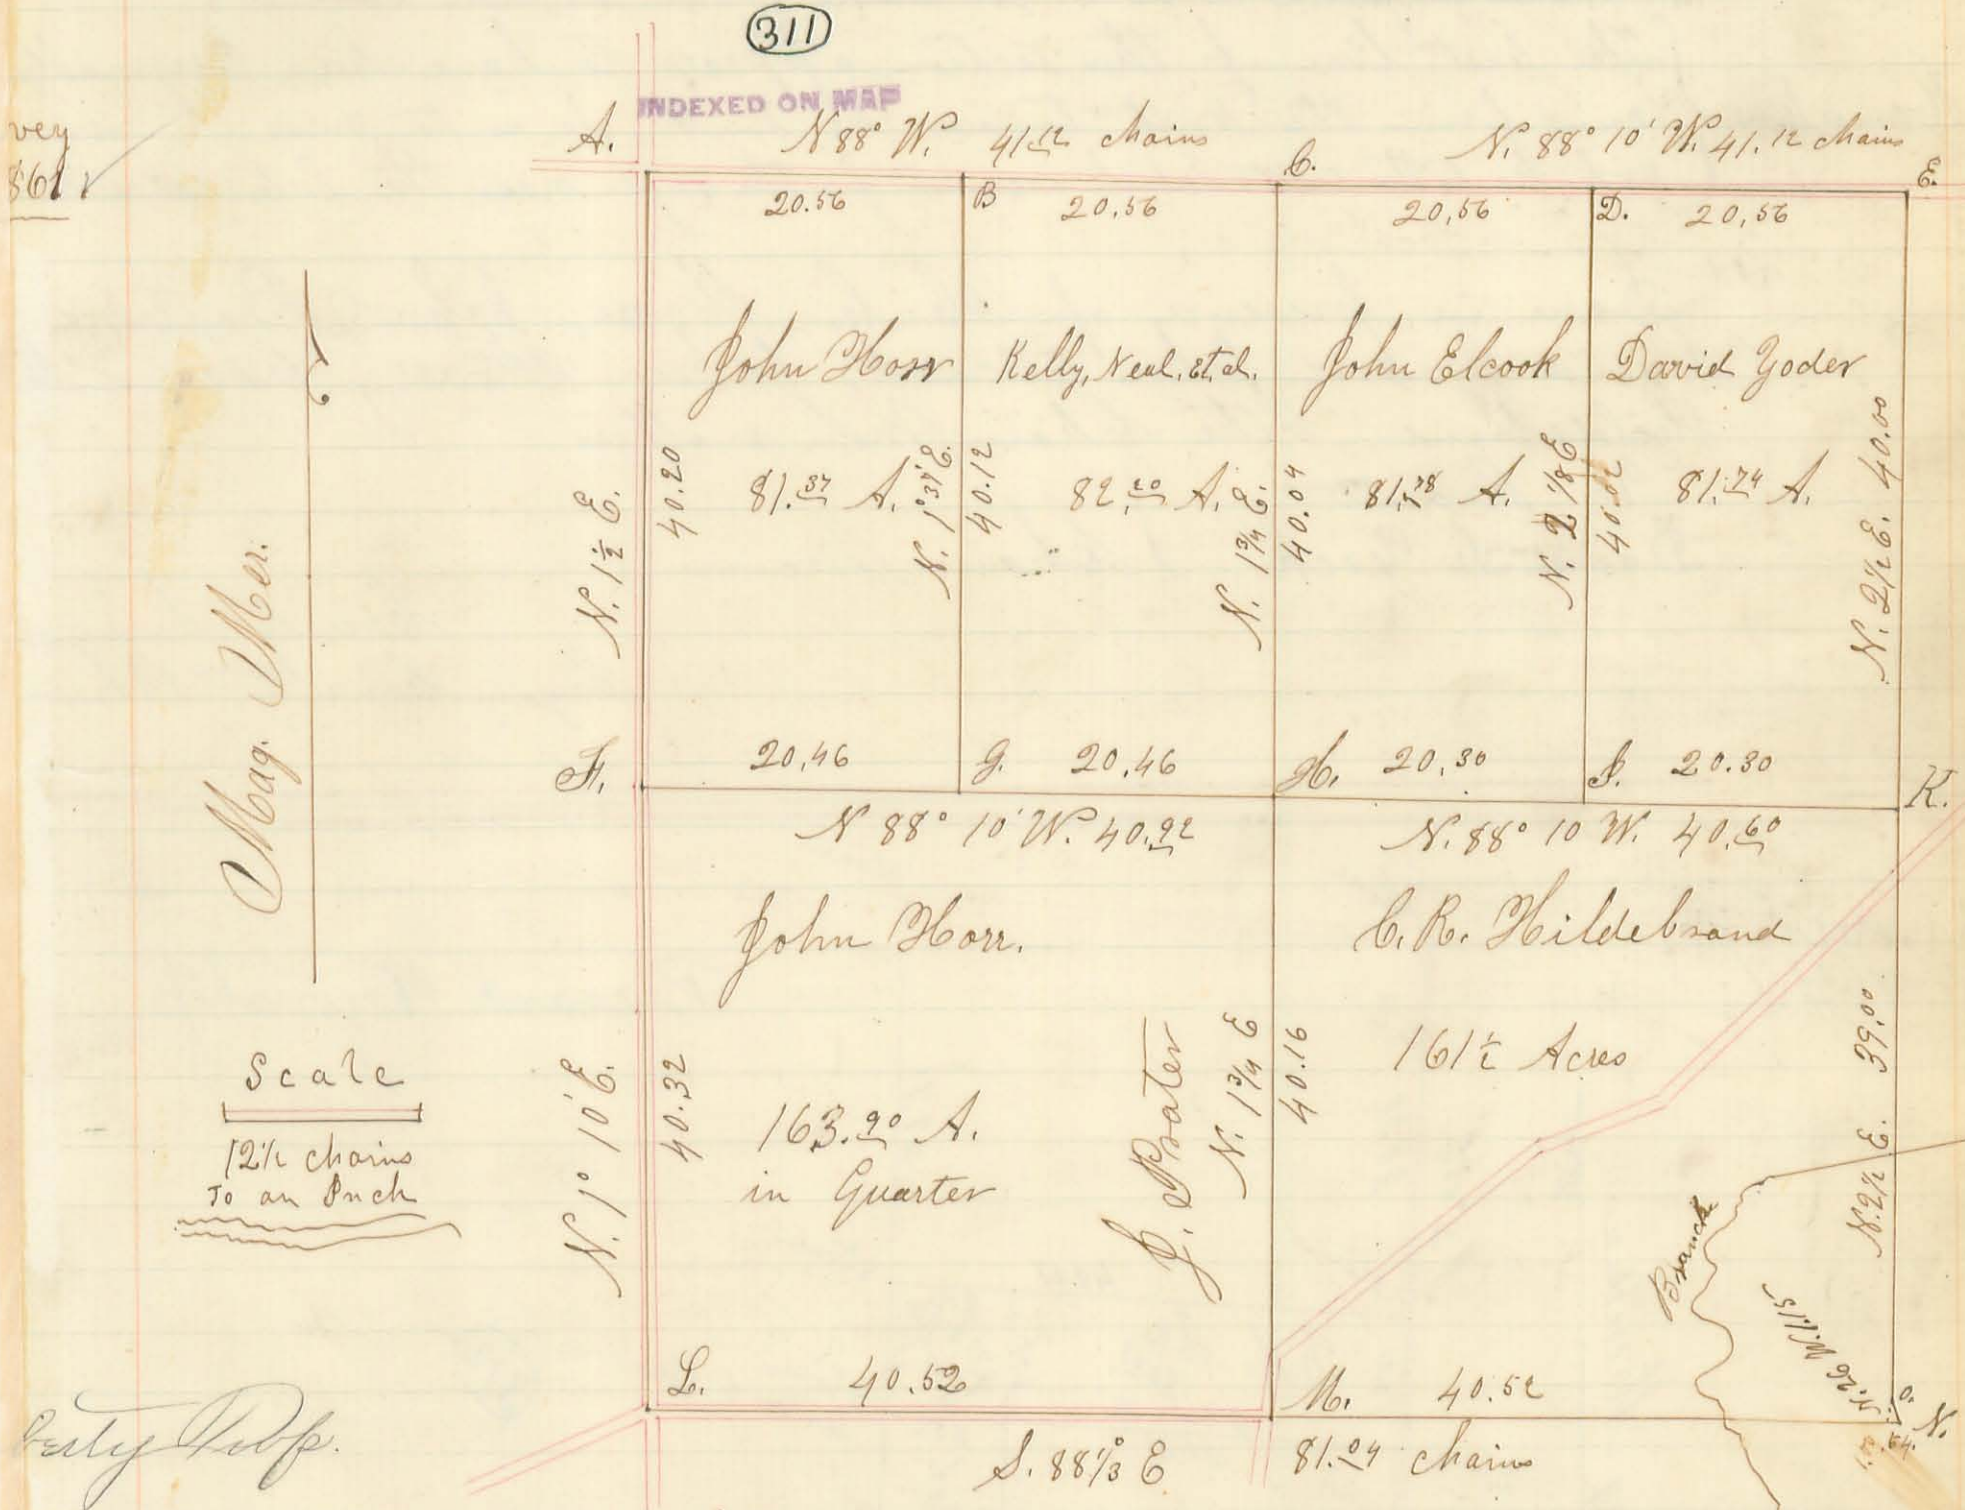 311
INDEXED ON MAP
vey
861
A.
N 88° W. 41.12 chains
C.
N. 88° 10' W. 41.12 chains
E.
20.56
B
20.56
20.56
D.
20.56
John Horr
Kelly, Neal, et al.
John Elcook
David Yoder
N. 1½ E.
40.20
81.37 A.
N. 1° 37' E.
40.12
82.20 A.
N. 1¾ E.
40.04
81.78 A.
N. 2 1/8 E
40.02
81.74 A.
N. 2½ E. 40.00
Mag. Mer.
F.
20.46
G.
20.46
H.
20.30
I.
20.30
K.
N 88° 10' W. 40.92
N. 88° 10 W. 40.60
John Horr.
C. R. Hildebrand
Scale
12½ chains
To an Inch
N. 1° 10' E.
40.32
163.90 A.
in Quarter
J. Prater
N. 1¾ E
40.16
161½ Acres
N. 2½ E. 39.00
Branch
N. 26 W.
L.
40.52
M.
40.52
O.
N.
S. 88⅓° E
81.04 chains
berty Twp.